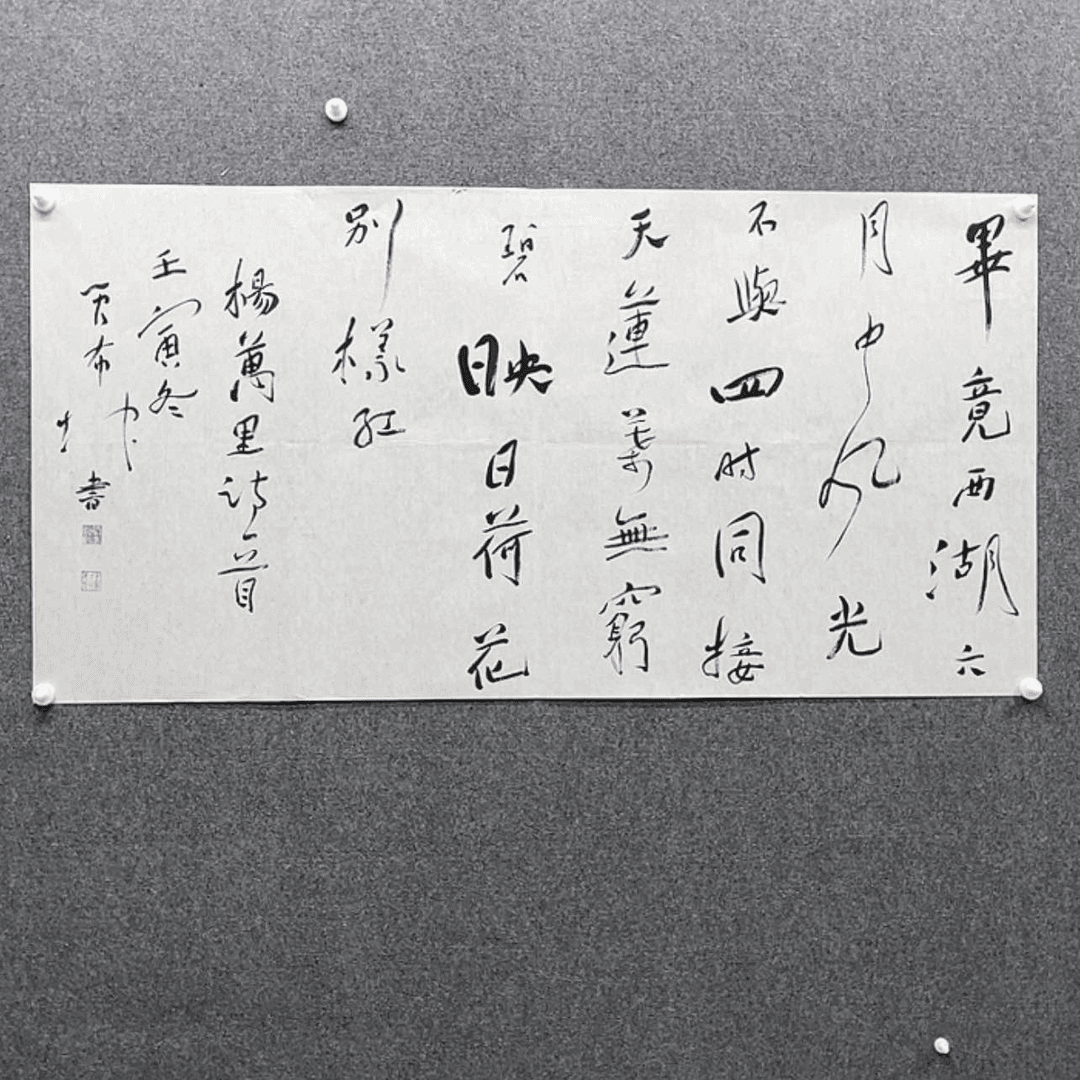 畢竟西湖六
月中風光
不與四時同接
天蓮葉無窮
碧映日荷花
別樣紅
楊萬里詩一首
壬寅冬
書